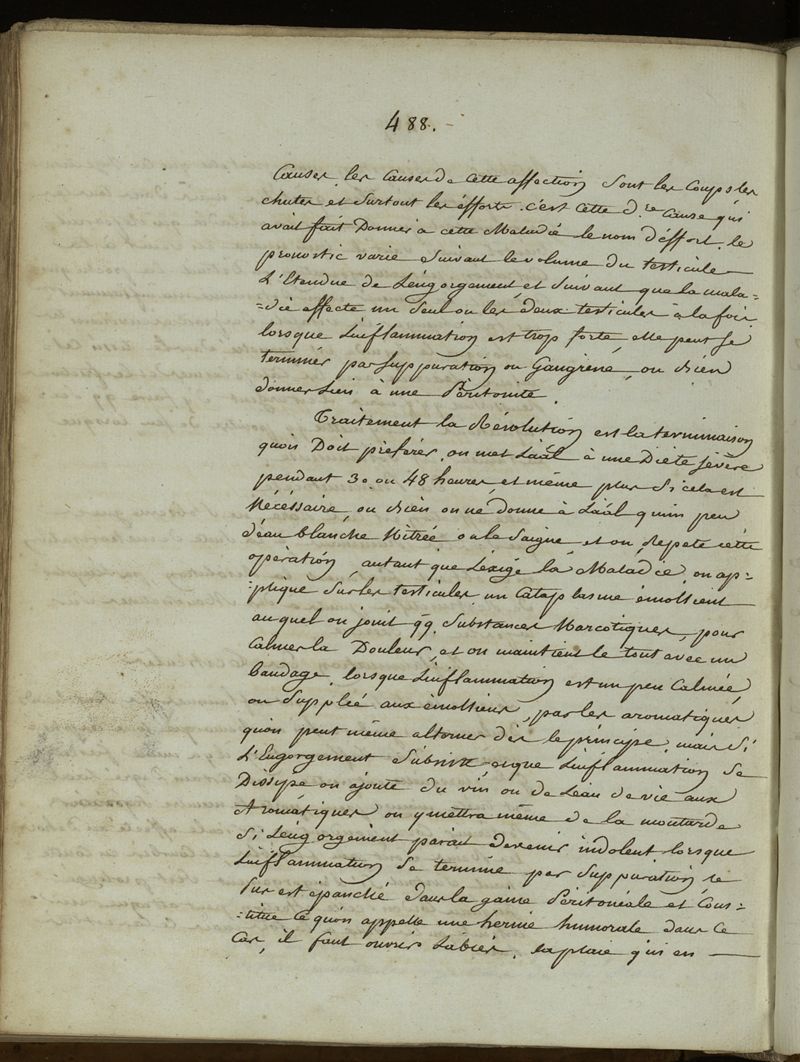 488.
Causes, les Causes de Cette affection Sont les Coups les
chutes et Surtout les éfforts. c'est Cette d.re Cause qui
avait fait Donner à cette Maladie le nom d'éffort. le
pronostic varie Suivant le volume du testicule
L'Etendue de L'éngorgement et Suivant que la mala=
=die affecte un Seul ou les deux testicules à la fois
lorsque L'inflammation est trop forte elle peut Se
terminér par Suppuration ou Gangréne, ou bien
donner Lieu à une Péritonite.
Traitement la Résolution est la terminaison
qu'on Doit préferér, on met L'aál à une Diete sévère
pendant 30 ou 48 heures et même plus Si cela est
Nécéssaire, ou bien on ne donne à L'aál qu'un peu
d'éau blanche Nitrée o le Saigne et on Repete cette
opération autant que L'éxige la Maladie, on ap=
=plique Sur les testicules un Cataplasme émollient
au quel on joint qq. Substances Narcotiques, pour
Calmer la Douleur, et on maintient le tout avec un
bandage, lorsque L'inflammation est un peu Calmée
on Suppléé aux émolliens, par les aromatiques
qu'on peut même alterner dès le principe, mais Si
L'Engorgement Subsiste et que L'inflammation Se
Dissipe on ajoute du vin ou de L'eau de vie aux
Aromátiques on y mettra même de la moutarde
Si L'éngorgement parait devenir indolent lorsque
L'inflammation Se termine par Suppuration le
Pus est épanché dans la gaine Péritonéale et Cons=
=titue Ce qu'on appelle une hernie humorale dans Ce
Cas, il faut ouvrir L'abcès, la plaie qui en